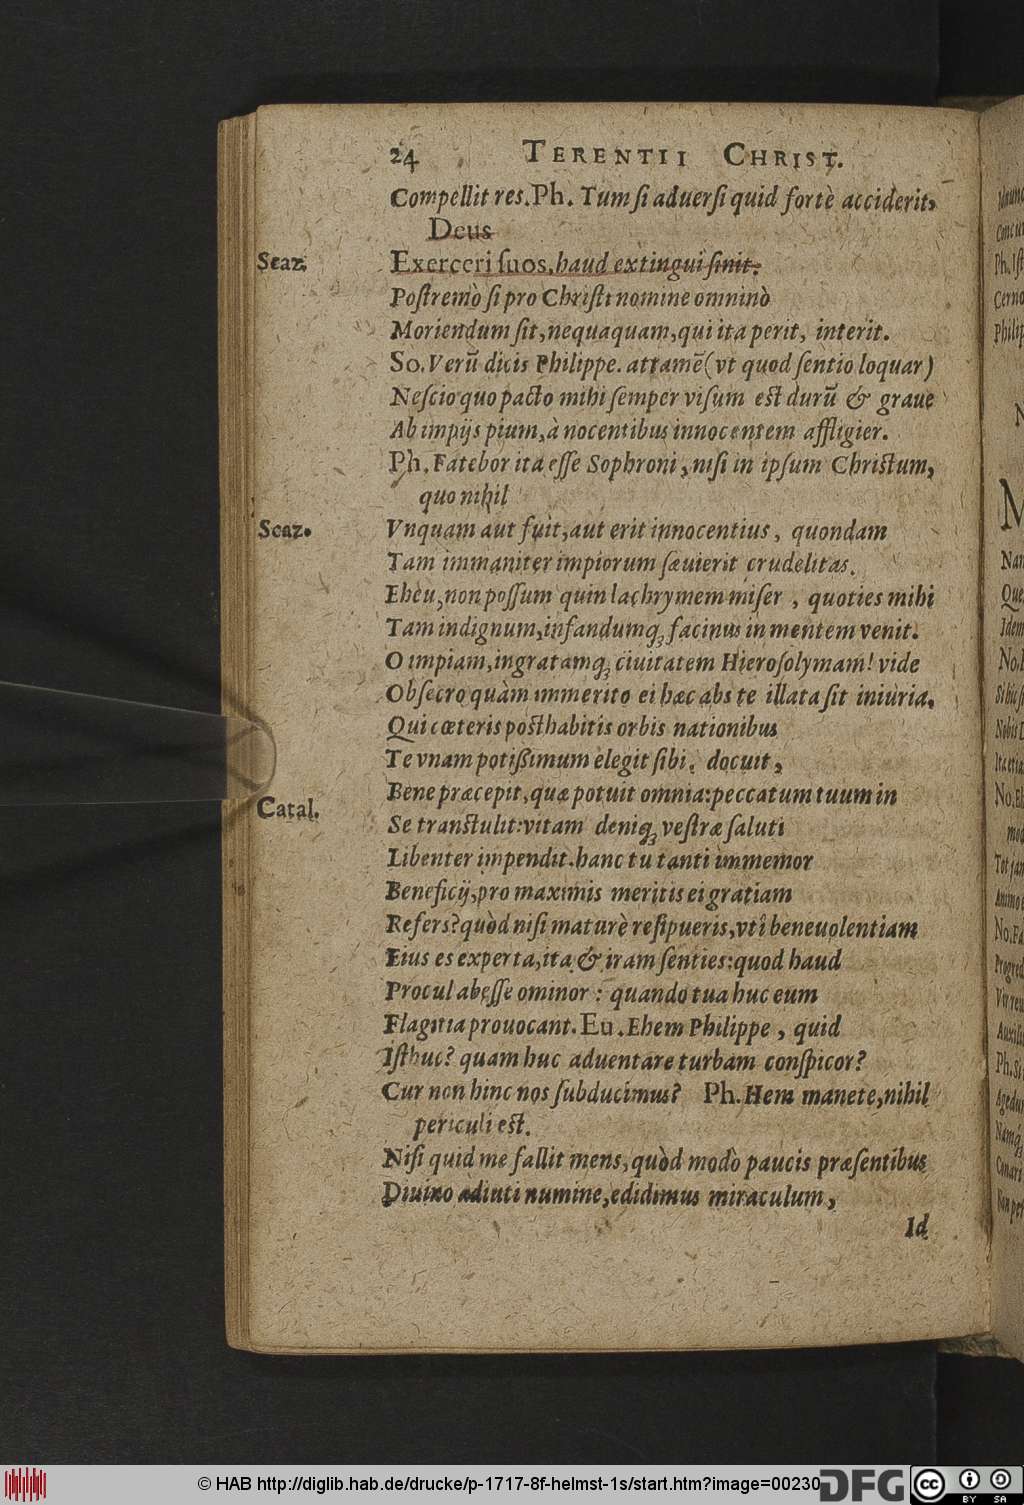 24 TERENTII CHRIST.
Compellit res. Ph. Tum si aduersi quid fortè acciderit,
Deus
Scaz. Exerceri suos, haud extingui sinit.
Postremò si pro Christi nomine omninò
Moriendum sit, nequaquam, qui ita perit, interit.
So. Verū dicis Philippe. attamē (vt quod sentio loquar)
Nescio quo pacto mihi semper visum est durū & graue
Ab impijs pium, à nocentibus innocentem affligier.
Ph. Fatebor ita esse Sophroni, nisi in ipsum Christum,
quo nihil
Scaz. Vnquam aut fuit, aut erit innocentius, quondam
Tam immaniter impiorum sæuierit crudelitas.
Eheu, non possum quin lachrymem miser, quoties mihi
Tam indignum, infandumq; facinus in mentem venit.
O impiam, ingratamq; ciuitatem Hierosolymam! vide
Obsecro quàm immerito ei hæc abs te illata sit iniuria.
Qui cæteris posthabitis orbis nationibus
Te vnam potißimum elegit sibi, docuit,
Bene præcepit, quæ potuit omnia: peccatum tuum in
Catal. Se transtulit: vitam deniq; vestræ saluti
Libenter impendit. hanc tu tanti immemor
Beneficij, pro maximis meritis ei gratiam
Refers? quòd nisi maturè resipueris, vti beneuolentiam
Eius es experta, ita & iram senties: quod haud
Procul abesse ominor: quando tua huc eum
Flagitia prouocant. Eu. Ehem Philippe, quid
Isthuc? quam huc aduentare turbam conspicor?
Cur non hinc nos subducimus? Ph. Hem manete, nihil
periculi est.
Nisi quid me fallit mens, quòd modò paucis præsentibus
Diuino adiuti numine, edidimus miraculum,
Id
© HAB http://diglib.hab.de/drucke/p-1717-8f-helmst-1s/start.htm?image=00230
DFG
cc BY SA